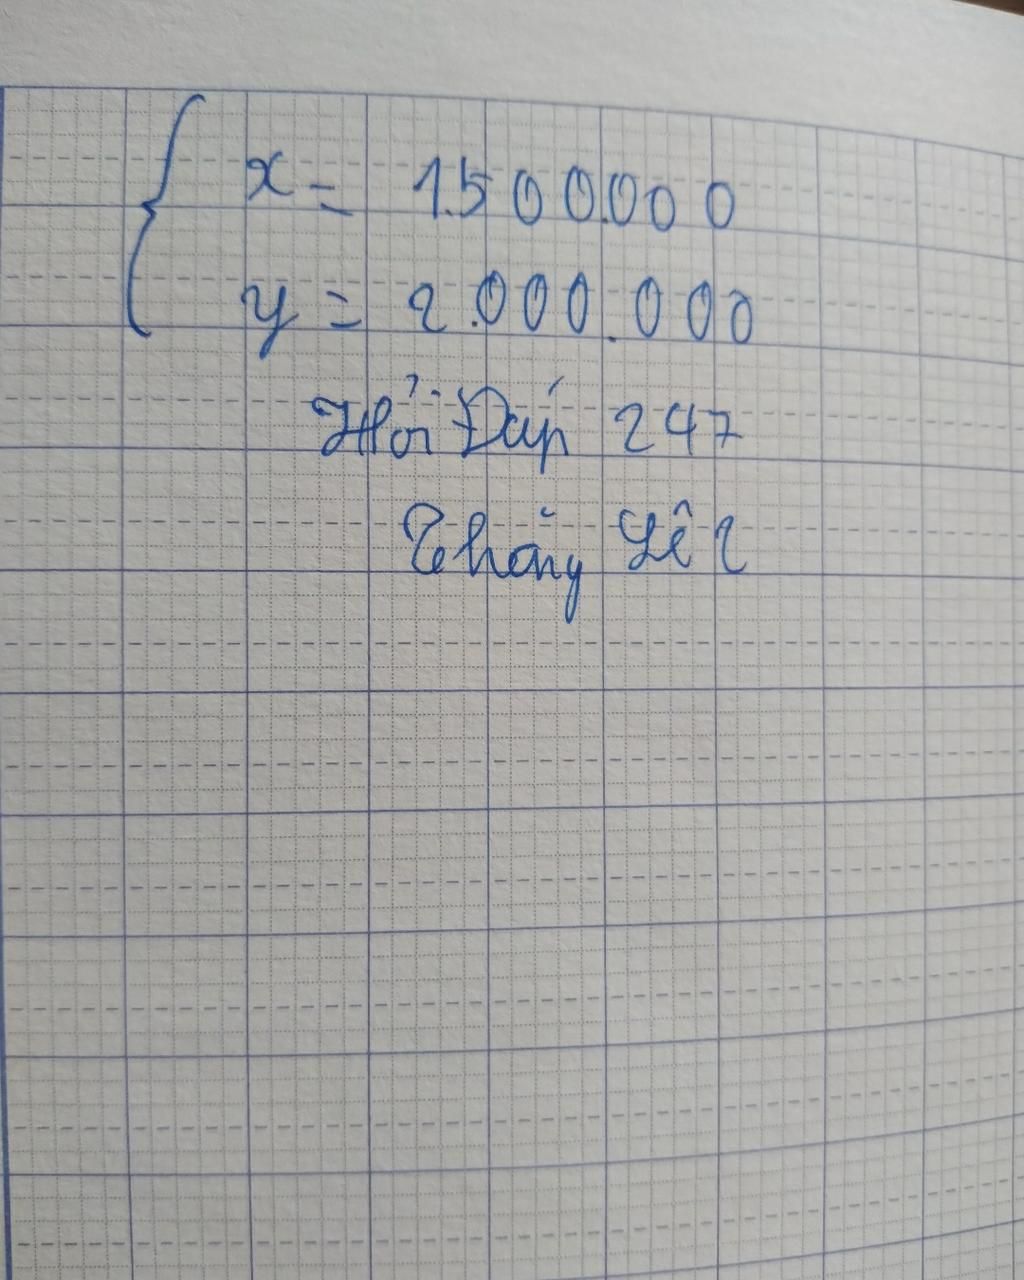 x = 1.500.000
y = 2.000.000
Hỏi Đáp 247